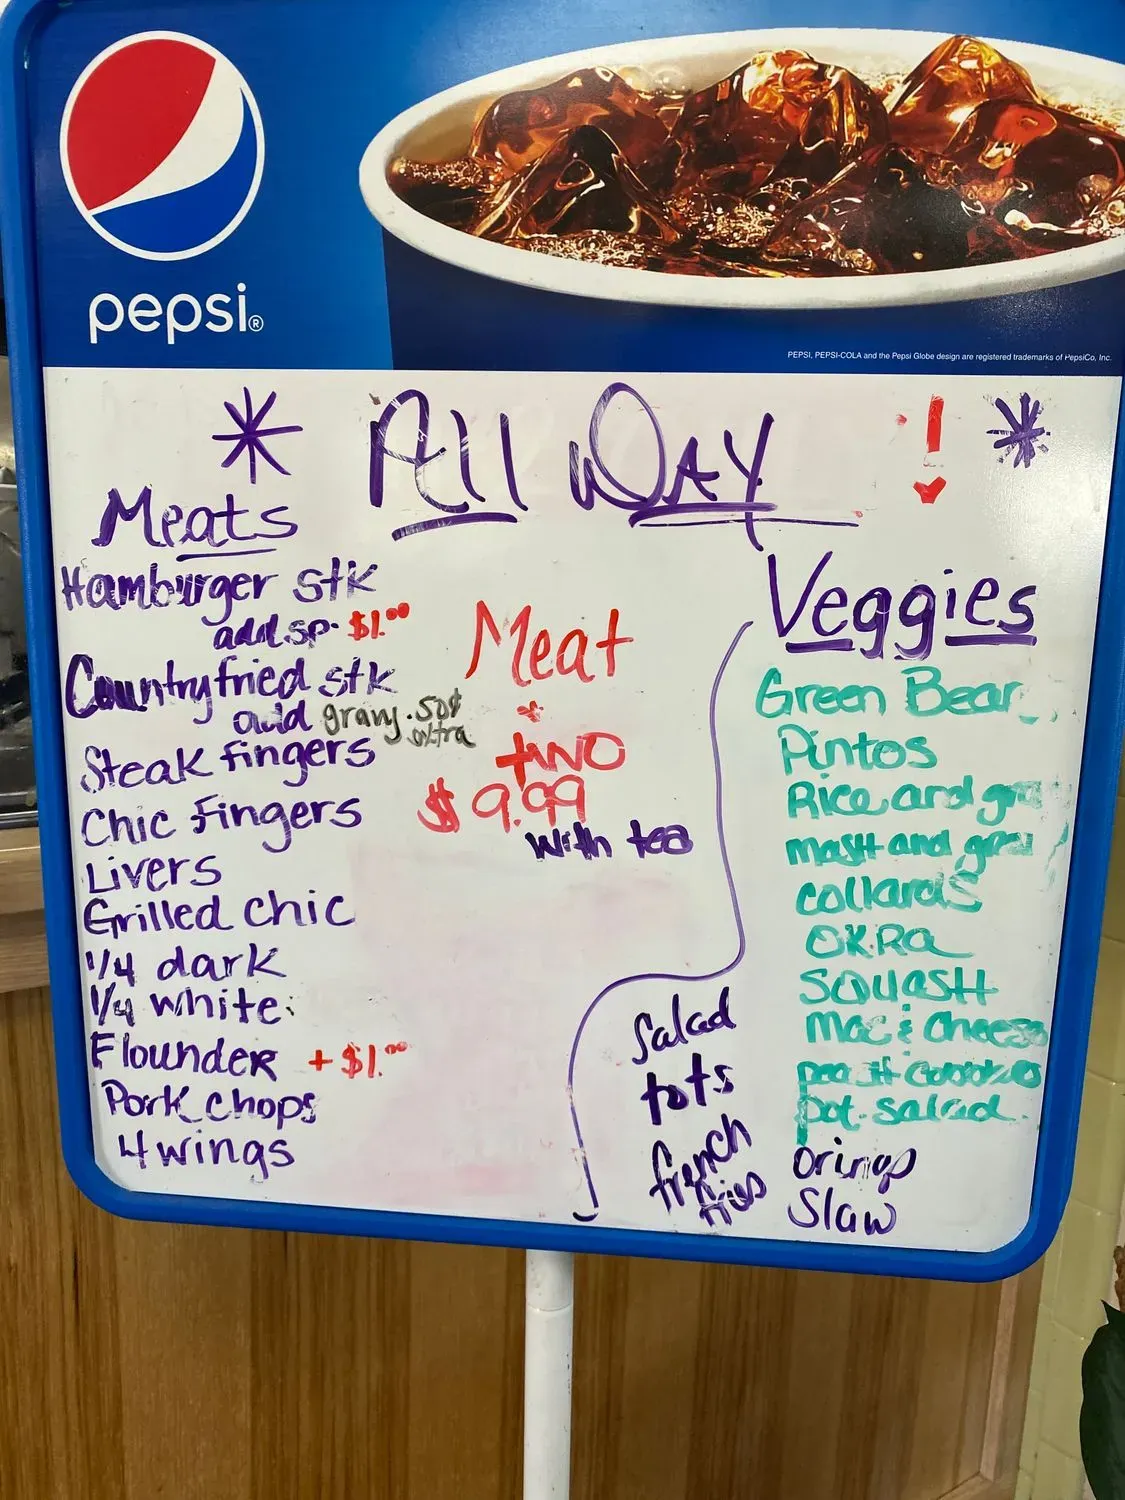 pepsi®
PEPSI, PEPSI-COLA and the Pepsi Globe design are registered trademarks of PepsiCo, Inc.
* All DAY ! *
Meats
Hamburger stk
add sp. $1.00
Countryfried stk
add gravy .50¢
extra
Steak fingers
Chic Fingers
Livers
Grilled chic
1/4 dark
1/4 white
Flounder + $1.00
Pork chops
4 wings
Meat
+
two
$9.99
with tea
Veggies
Green Bean
Pintos
Rice and
mash and
collards
OKRa
SQUASH
Mac & Cheese
peach
pot. salad
Orings
Slaw
Salad
tots
french
fries